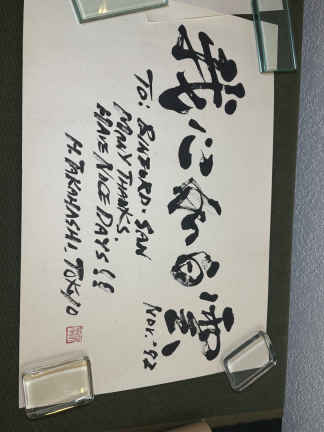 我心白雲
TO: BINFORD-SAN
NOV. '92
MANY THANKS.
HAVE NICE DAYS!!
H. TAKAHASHI, TOKYO